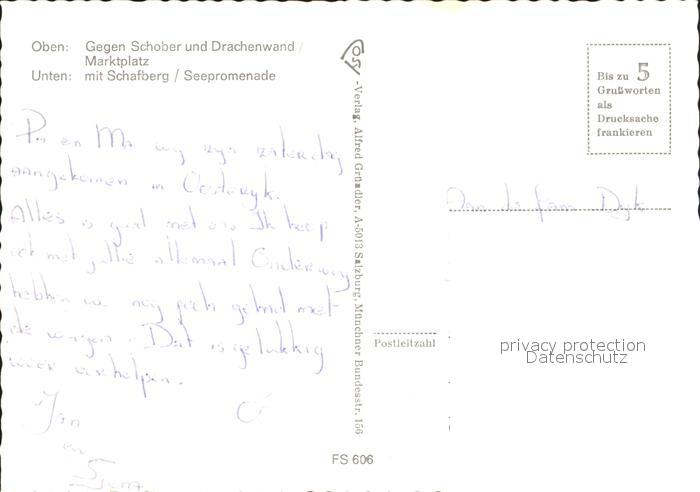 Oben: Gegen Schober und Drachenwand /
Marktplatz
Unten: mit Schafberg / Seepromenade
Bis zu 5
Grußworten
als
Drucksache
frankieren
-Verlag, Alfred Gründler, A-5013 Salzburg, Münchner Bundesstr. 156
Pa en Ma wy zyn zaterdag
aangekomen in Oostenryk.
Alles is goed met ons Ik hoop
ook met jullie allemaal Onderweg
hebben we nog pech gehad met
de wagen. Dat is gelukkig
weer verholpen.
Jan
en
Aan de fam Dyk
Postleitzahl
privacy protection
Datenschutz
FS 606